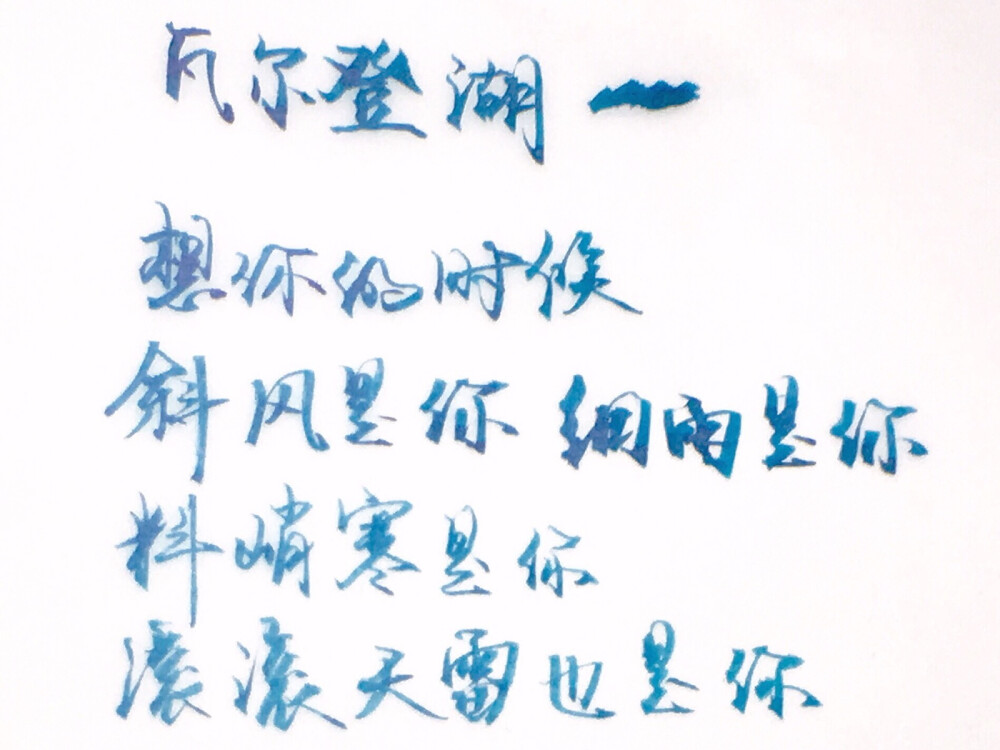 瓦尔登湖一
想你的时候
斜风是你 细雨是你
料峭寒是你
滚滚天雷也是你